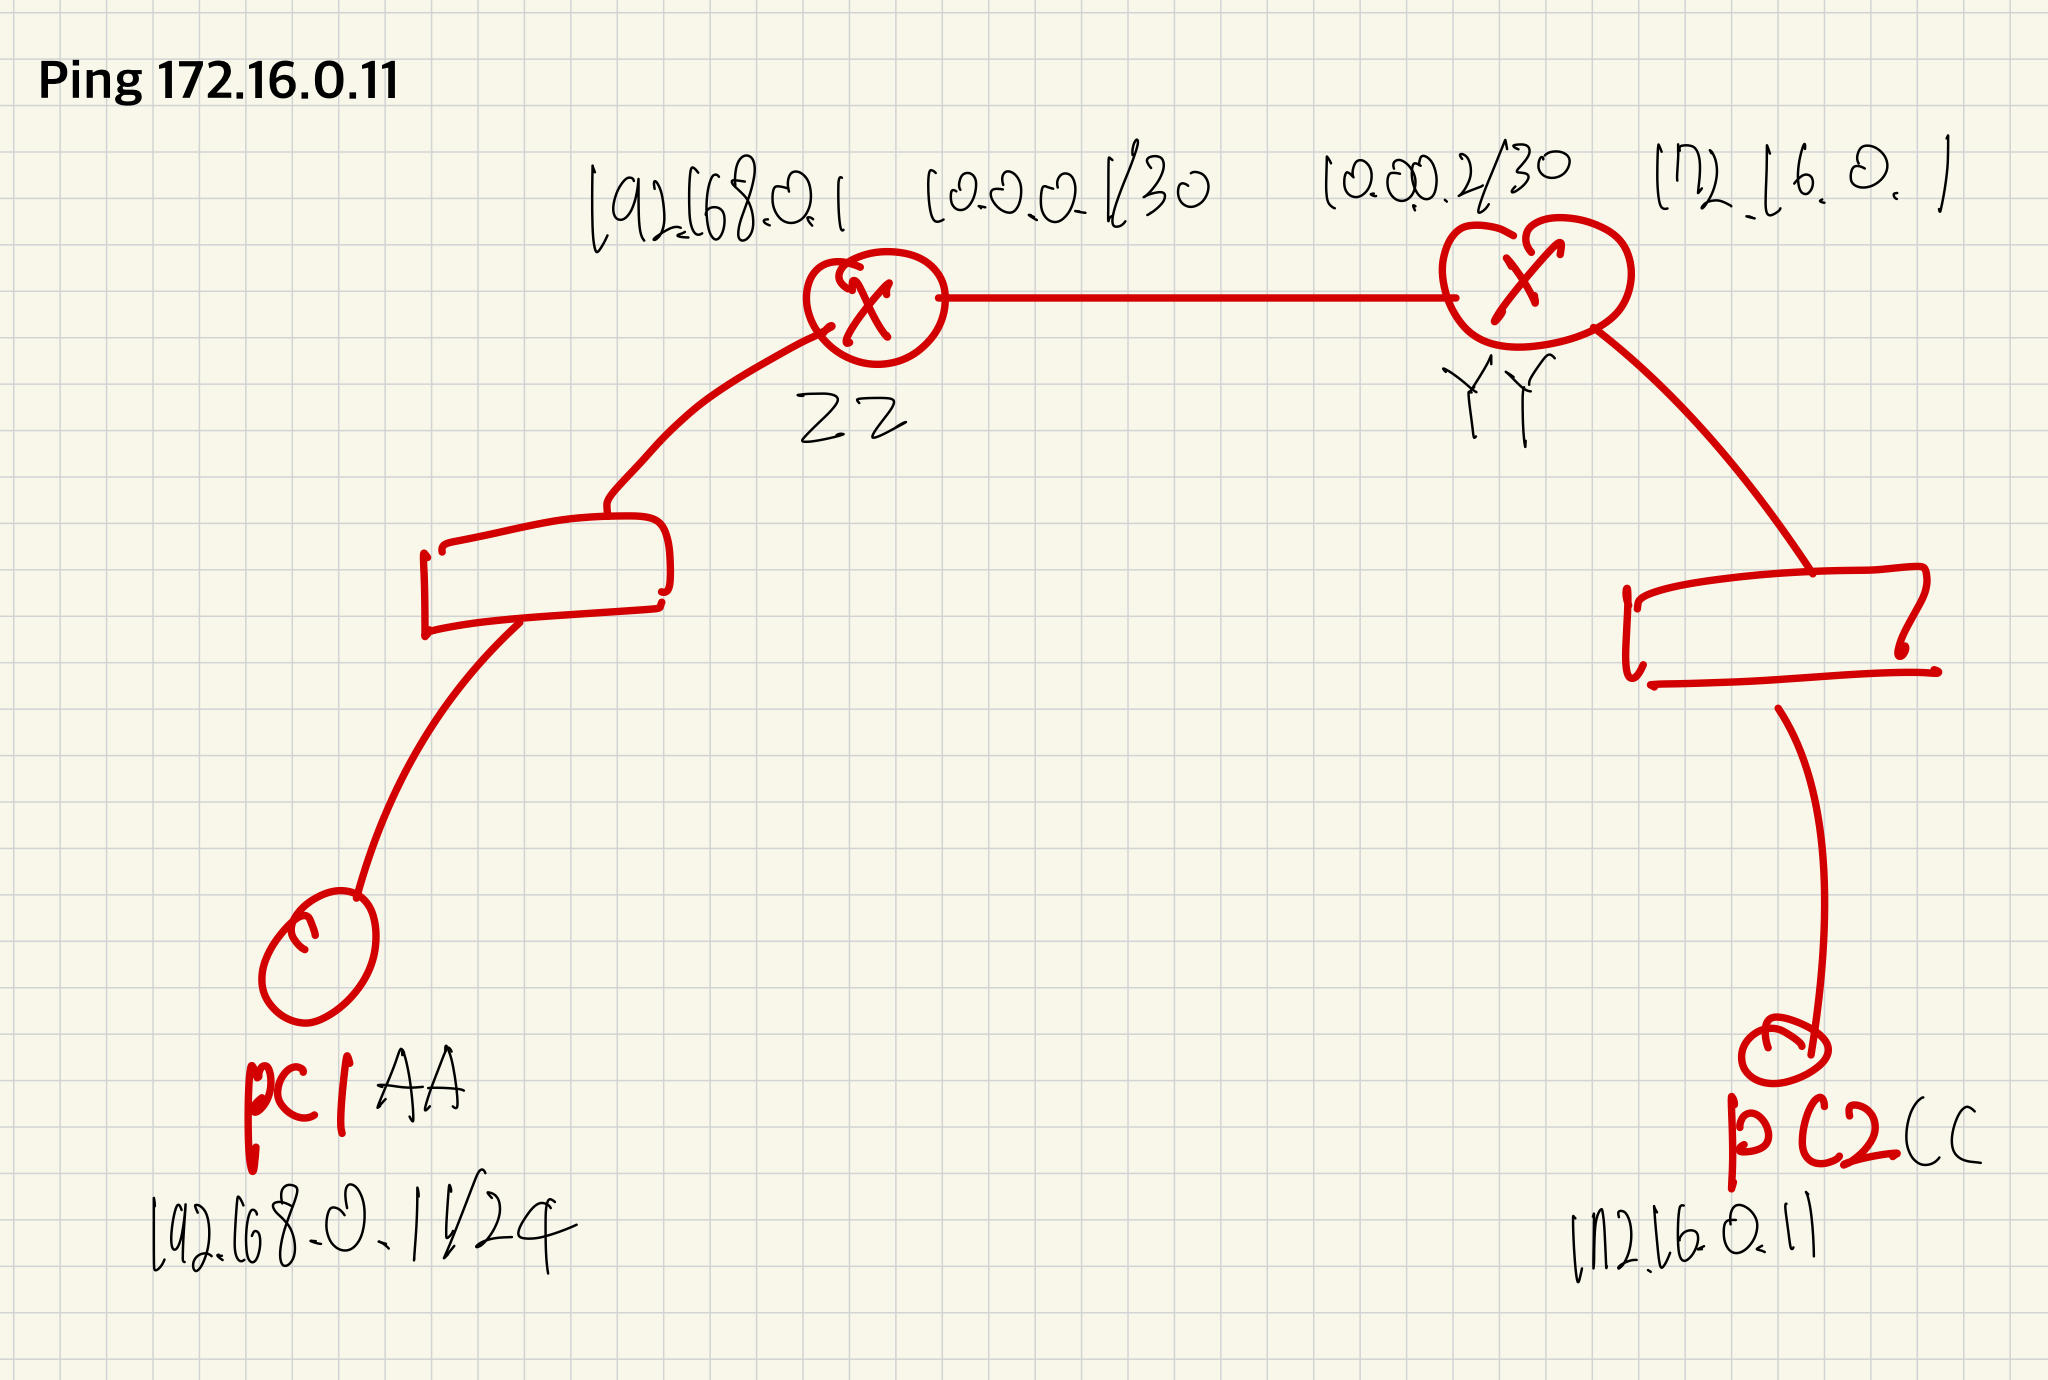 Ping 172.16.0.11
192.168.0.1 10.0.0.1/30 10.0.0.2/30 172.16.0.1
X X
ZZ YY
PC1 AA
PC2 CC
192.168.0.11/24
172.16.0.11